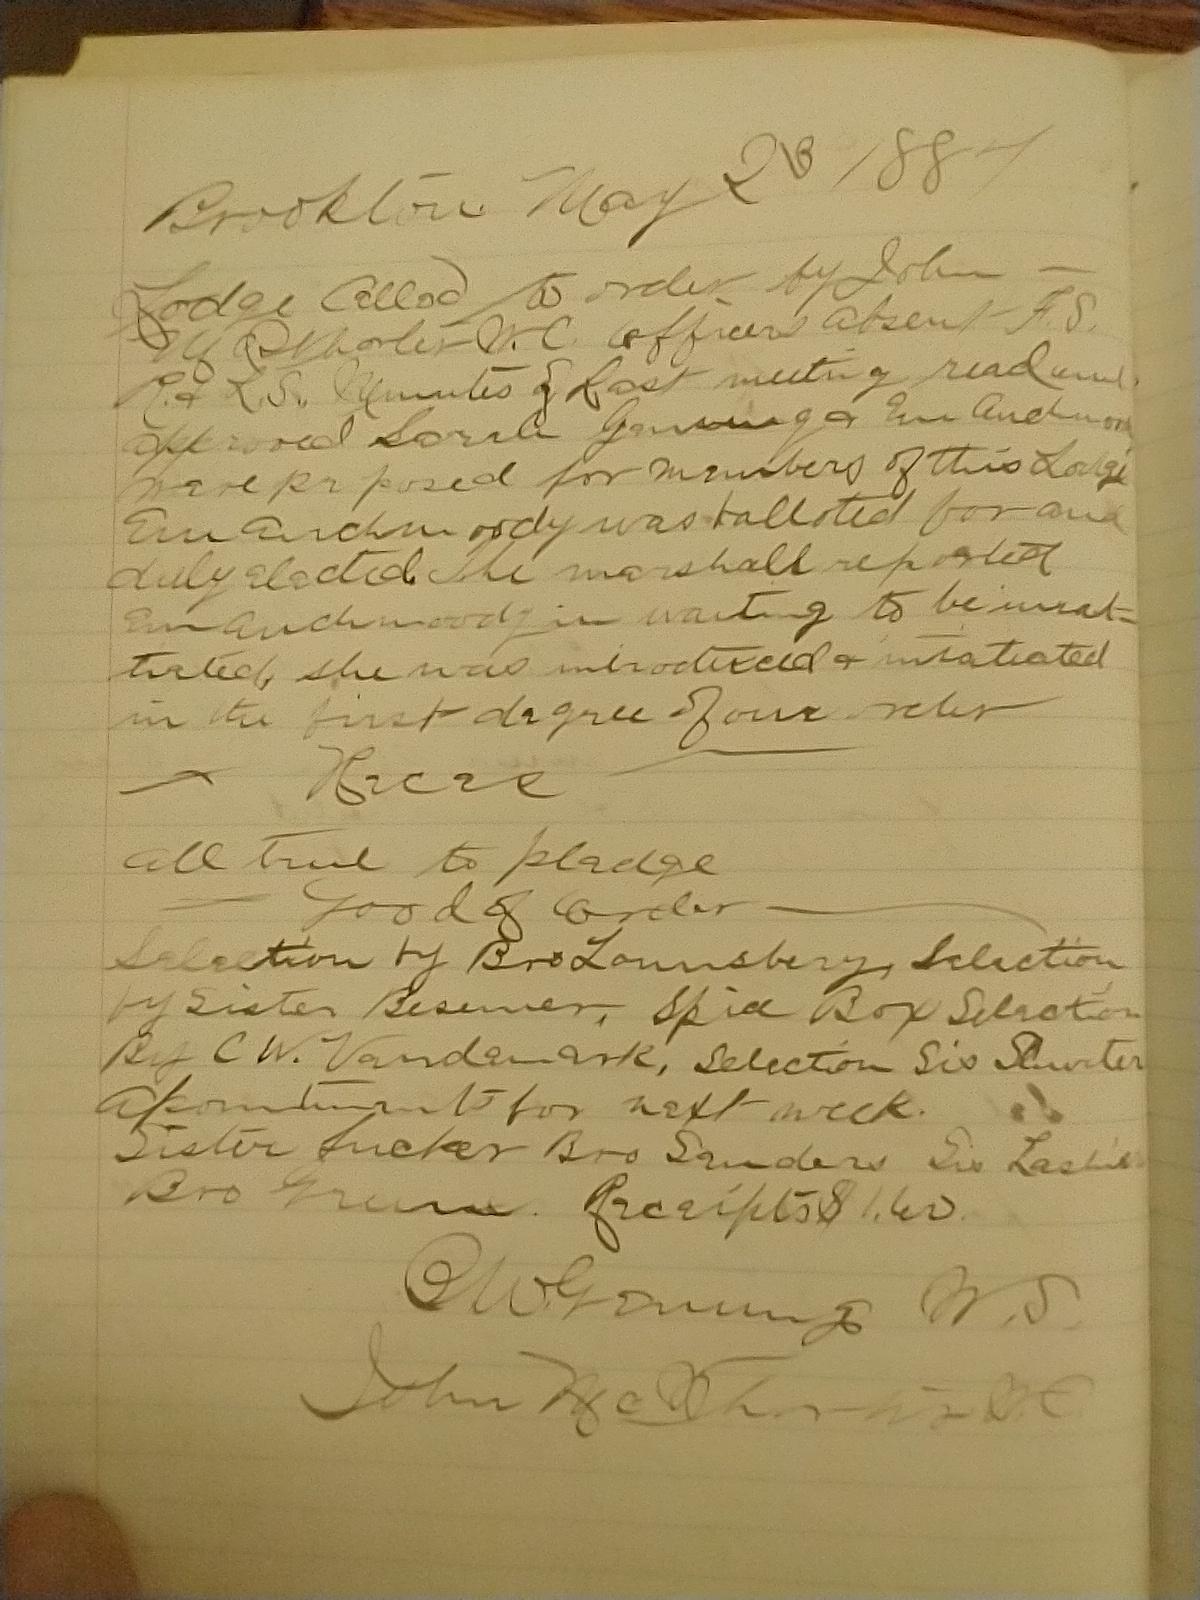 Brookton May 28 1884
Lodge Called to order by John —
Mc Whorter W.C. officers absent F.S.
R. & L.S. Minutes of Last meeting read and
approved Sarah Genung & Em Auchmoody
ware praposed for members of this Lodge
Em Auchmoody was balloted for and
duly elected. The marshall reported
Em Auchmoody in waiting to be iniat-
tiated, she was introduced & iniatiated
in the first degree of our order
— Reces
all true to pladge
— Good of Order —
Selection by Bro Lounsbery, Selection
by Sister Besemer, Spice Box Selection
By C W. Vandemark, Selection Sis
for next week.
Sister Tucker Bro Sanders Sis
Bro Receipts $1.60.
C W Genung W.S.
John Mc Whorter W.C.